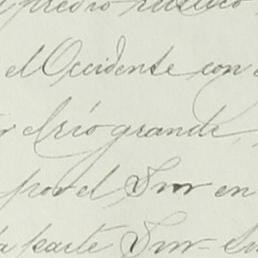 predio rústico
el Occidente con
el río grande,
por el Sur en
la parte Sur-